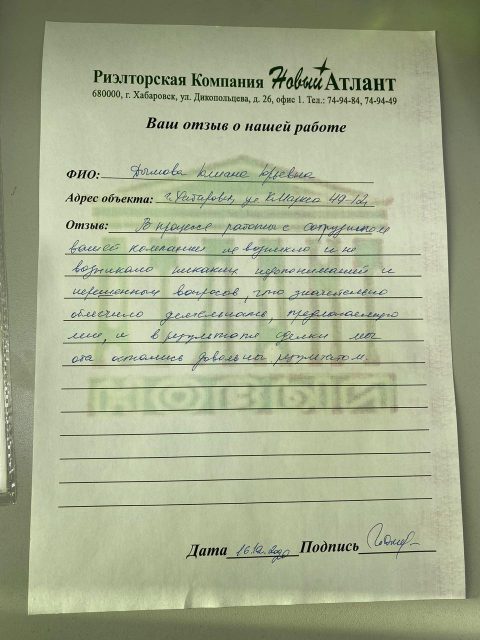 Риэлторская Компания Новый Атлант
680000, г. Хабаровск, ул. Дикопольцева, д. 26, офис 1. Тел.: 74-94-84, 74-94-49
Ваш отзыв о нашей работе
ФИО: Дымова Юлиана Юрьевна
Адрес объекта: г. Хабаровск, ул. К.Маркса 49-12
Отзыв: В процессе работы с сотрудником
вашей компании не возникло и не
возникало никаких недопониманий и
нерешенных вопросов, что значительно
облегчило деятельность, предлагаемую
мне, и в результате сделки мы
оба остались довольны результатом.
Дата 16.12.2020 Подпись